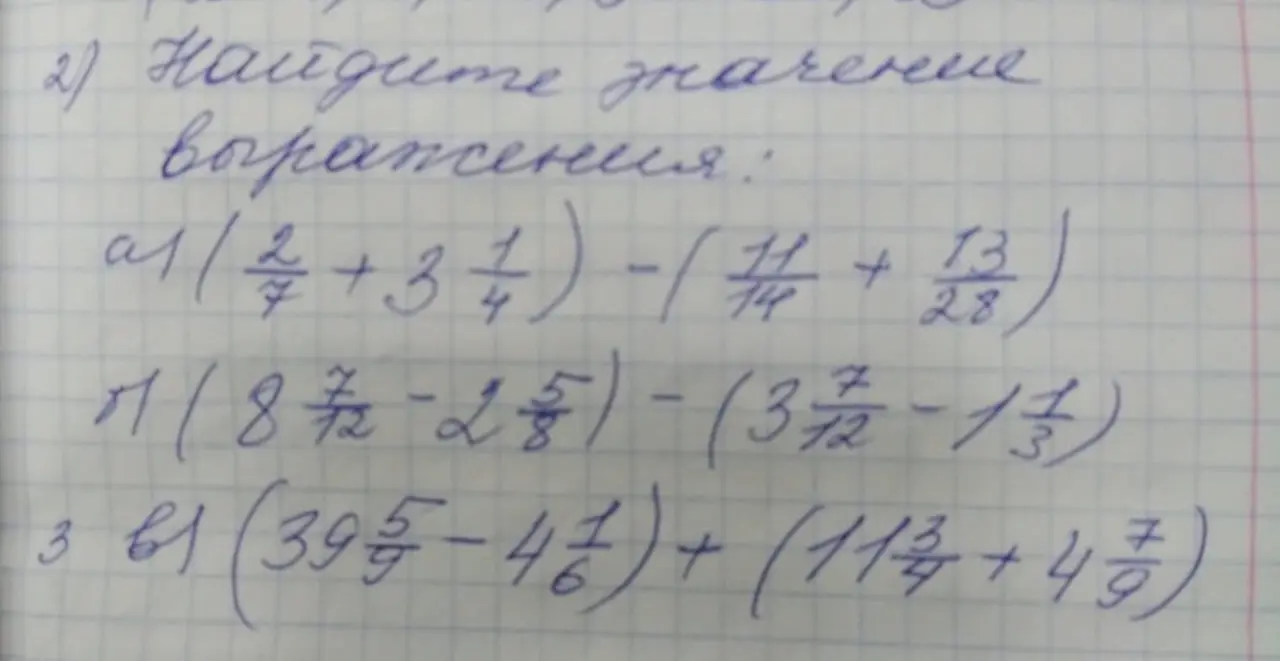 2) Найдите значение
выражения:
а) (2/7 + 3 1/4) - (11/14 + 13/28)
б) (8 7/12 - 2 5/8) - (3 7/12 - 1 1/3)
3 в) (39 5/9 - 4 1/6) + (11 3/4 + 4 7/9)